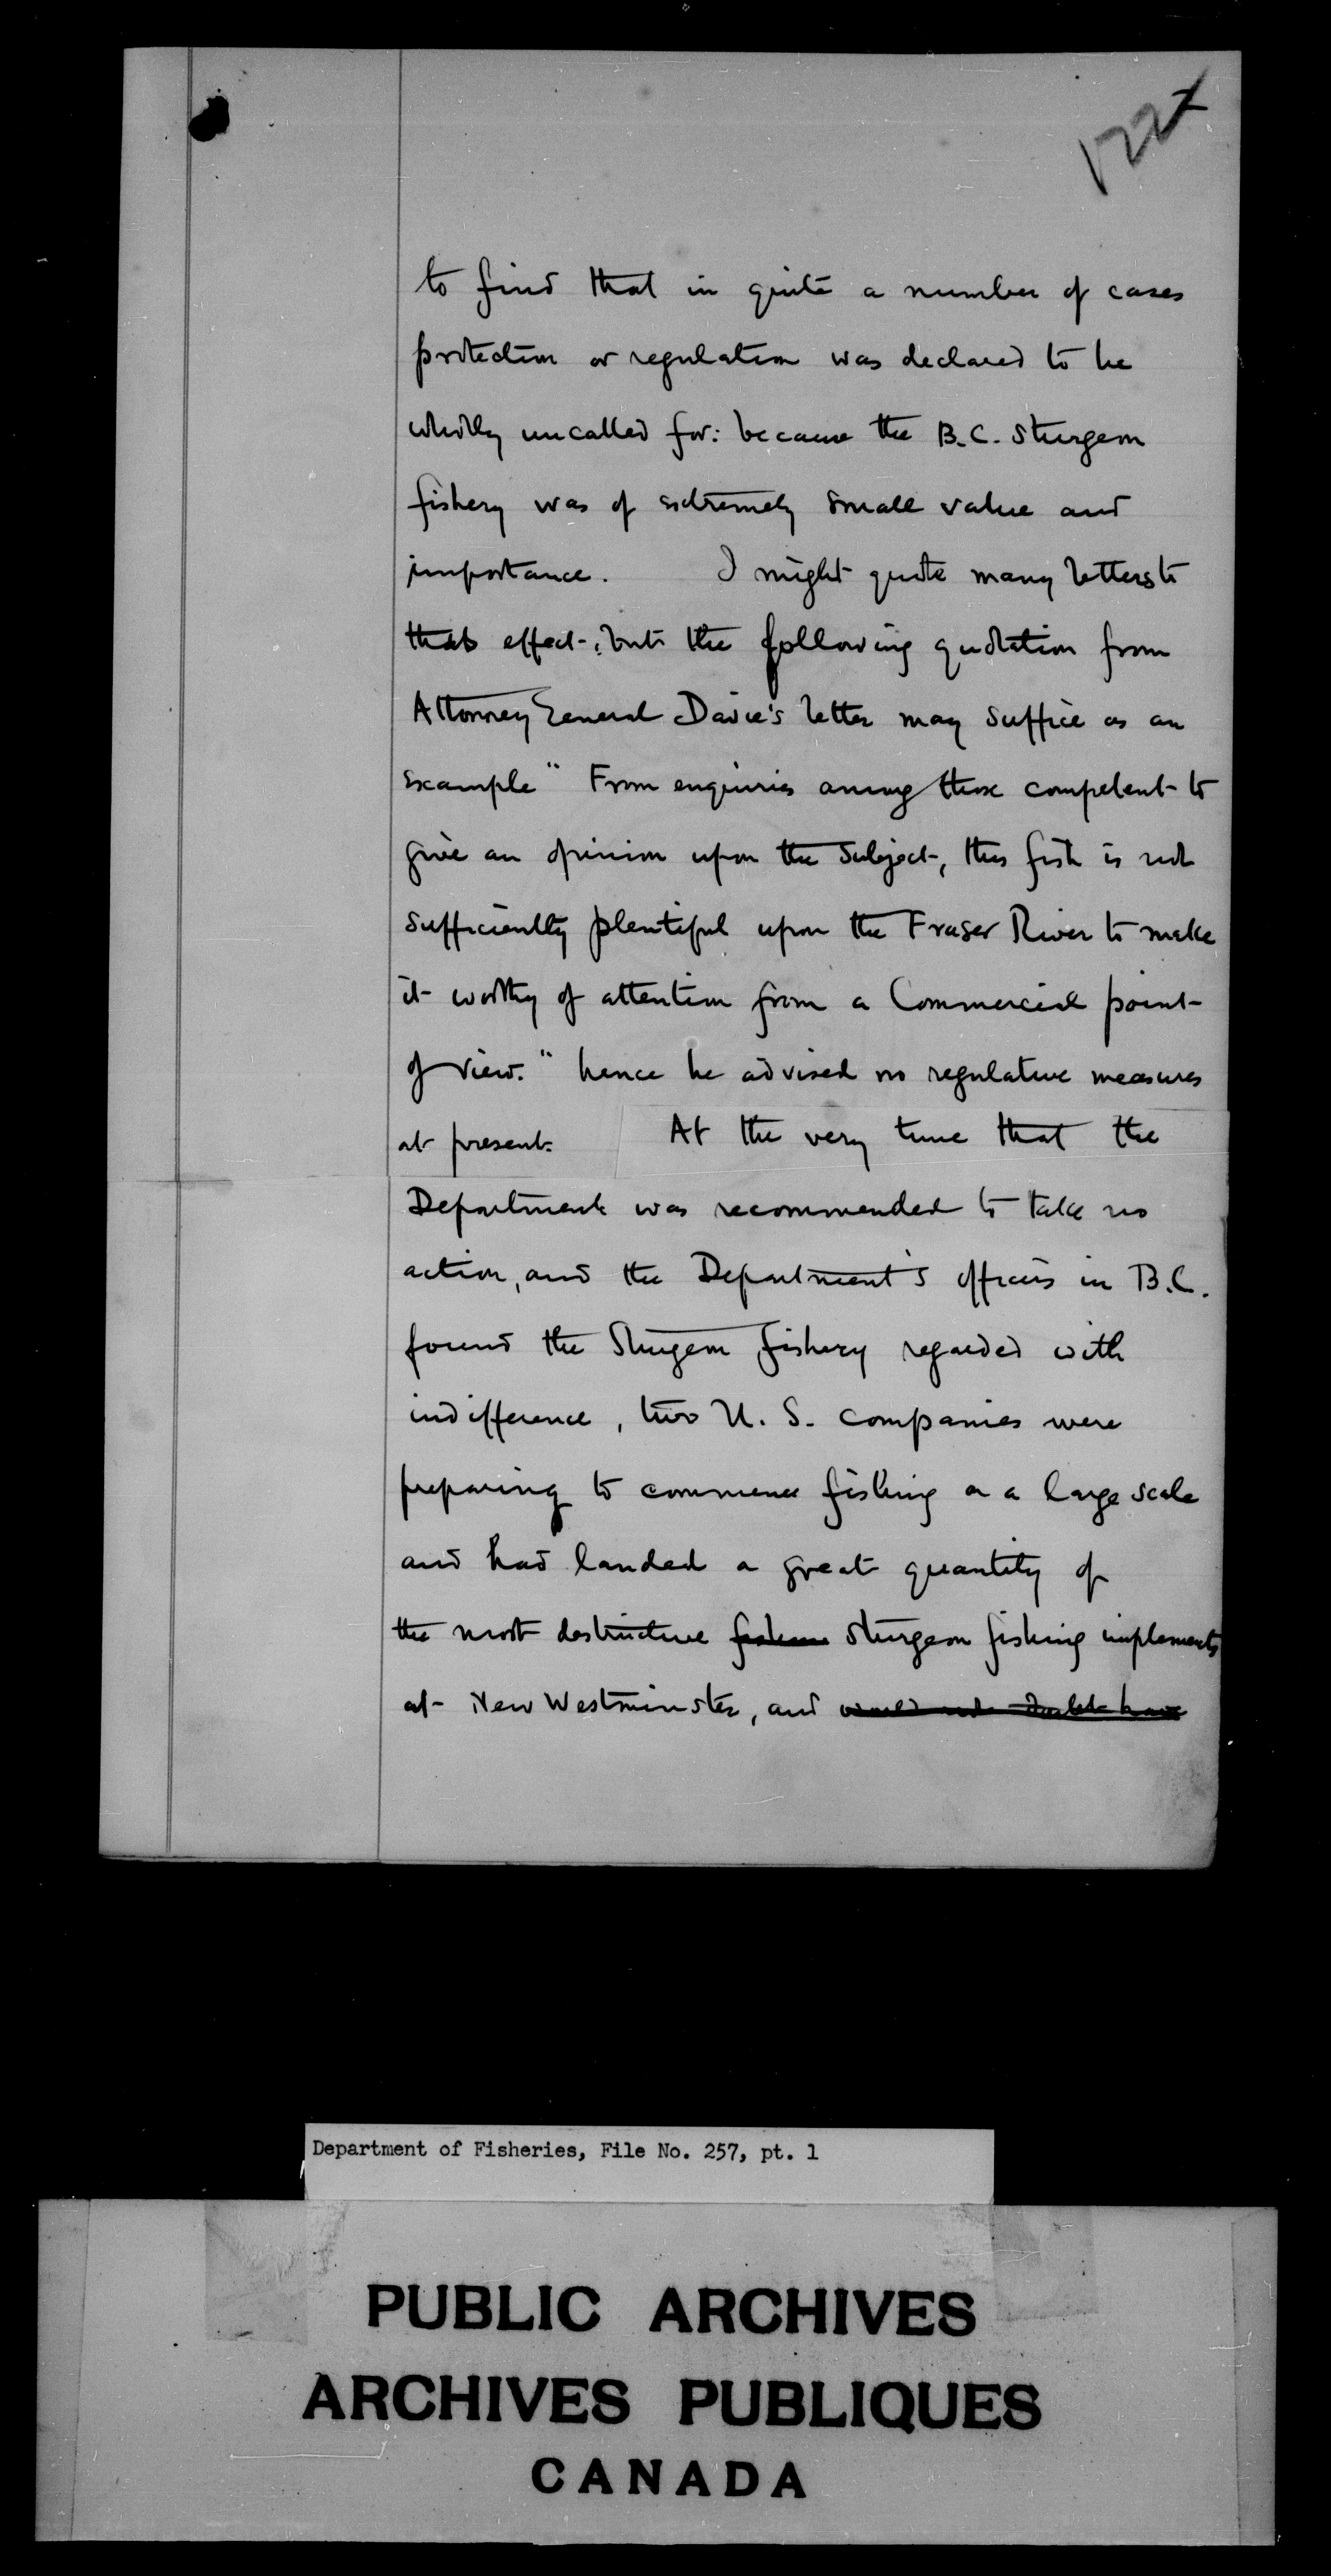 122
to find that in quite a number of cases
protection or regulation was declared to be
wholly uncalled for: because the B.C. Sturgeon
fishery was of extremely small value and
importance. I might quote many letters to
that effect, but the following quotation from
Attorney General Davie's letter may suffice as an
example " From enquiries among those competent to
give an opinion upon the subject, this fish is not
sufficiently plentiful upon the Fraser River to make
it worthy of attention from a Commercial point
of view." hence he advised no regulative measures
at present. At the very time that the
Department was recommended to take no
action, and the Department's officers in B.C.
found the Sturgeon fishery regarded with
indifference, two U.S. companies were
preparing to commence fishing on a large scale
and had landed a great quantity of
the most destructive Sturgeon fishing implements
at New Westminster, and
Department of Fisheries, File No. 257, pt. 1
PUBLIC ARCHIVES
ARCHIVES PUBLIQUES
CANADA